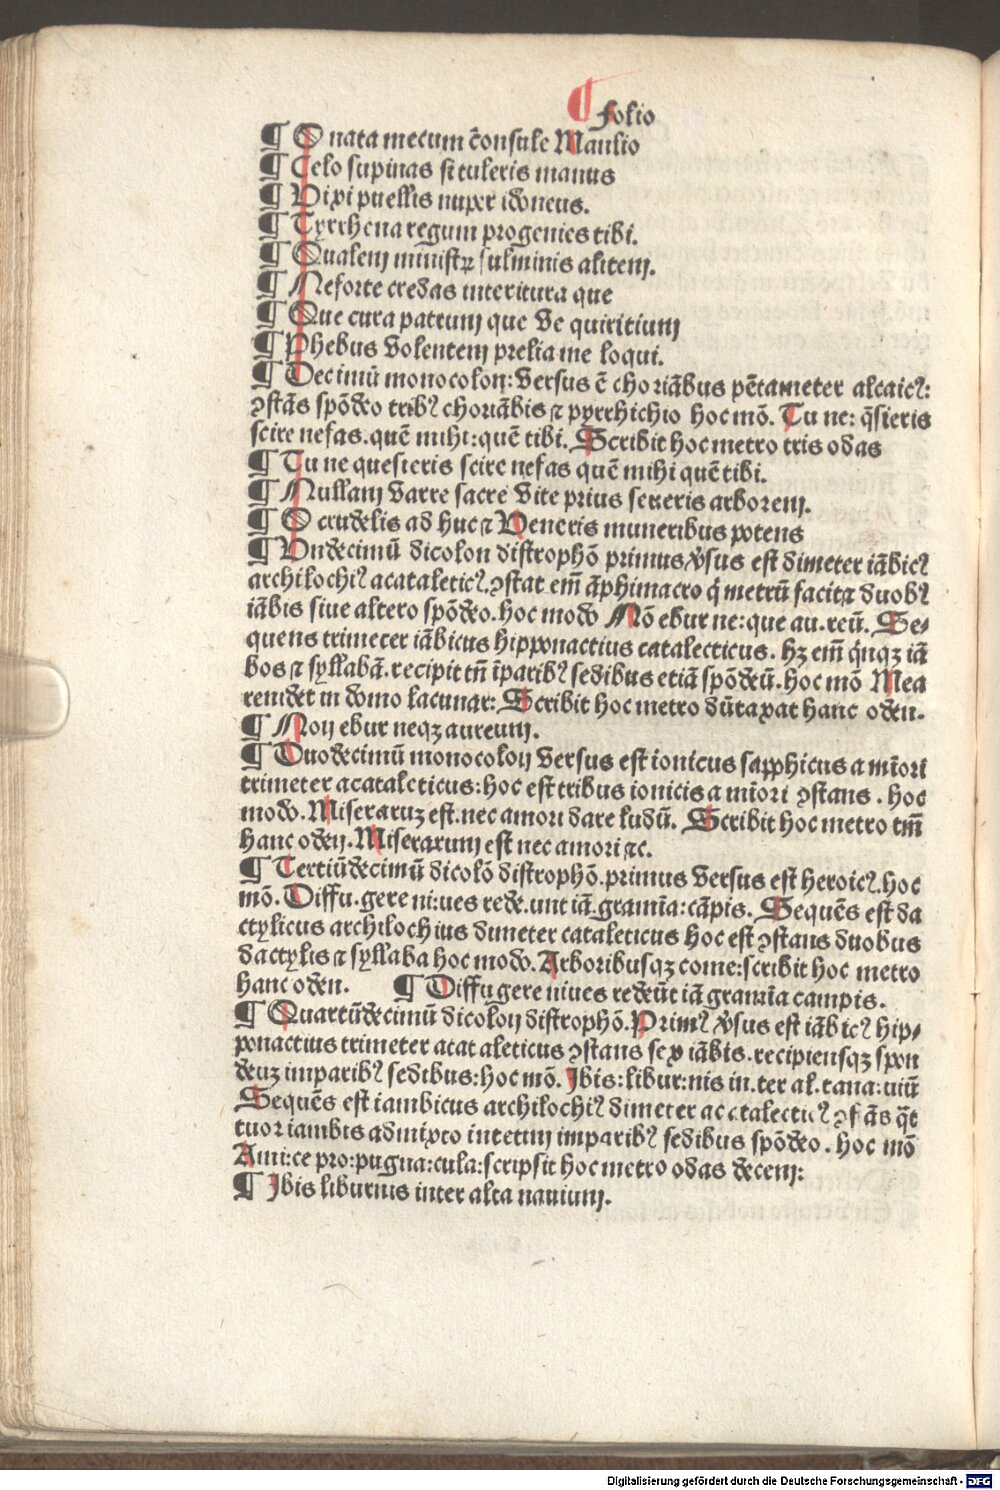 Folio
¶ O nata mecum cōnsule Manlio
¶ Celo supinas si tuleris manus
¶ Vixi puellis nuper idoneus.
¶ Tyrrhena regum progenies tibi.
¶ Qualem ministrꝝ fulminis alitem.
¶ Neforte credas interitura que
¶ Que cura patrum que ve quiritium
¶ Phebus volentem prelia me loqui.
¶ Decimū monocolon: versus ē choriābus pētameter alcaicꝰ:
ꝯstās spōdeo tribꝰ choriābis ⁊ pyrrhichio hoc mō. Tu ne: q̄sieris
scire nefas. quē mihi: quē tibi. Scribit hoc metro tris odas
¶ Tu ne quesieris scire nefas quē mihi quē tibi.
¶ Nullam varre sacre vite prius seueris arborem.
¶ O crudelis ad huc ⁊ Veneris muneribus potens
¶ Vndecimū dicolon distrophō primus v̄sus est dimeter iābicꝰ
archilochiꝰ acataleticꝰ. ꝯstat em̄ āphimacro q̇ metrū facit ⁊ duobꝰ
iābis siue altero spōdeo. hoc modo Nō ebur ne: que au. reū. Se⸗
quens trimeter iābicus hipponactius catalecticus. hꝫ em̄ q̇nqꝫ iā
bos ⁊ syllabā. recipit tn̄ īparibꝰ sedibus etiā spōdeū. hoc mō Mea
renidet in domo lacunar: Scribit hoc metro dūtaxat hanc oden.
¶ Non ebur neqꝫ aureum.
¶ Duodecimū monocolon versus est ionicus sapphicus a miori
trimeter acatalecticus: hoc est tribus ionicis a miori ꝯstans. hoc
modo. Miseraruꝫ est. nec amori dare ludū. Scribit hoc metro tm̄
hanc oden. Miserarum est nec amori ⁊c.
¶ Tertiūdecimū dicolō distrophō. primus versus est heroicꝰ. hoc
mō. Diffu. gere ni: ues rede. unt iā. gramīa: cāpis. Sequēs est da
ctylicus archilochius dimeter cataleticus hoc est ꝯstans duobus
dactylis ⁊ syllaba hoc modo. Arboribusqꝫ come: scribit hoc metro
hanc oden. ¶ Diffugere niues redeūt iā gramīa campis.
¶ Quartūdecimū dicolon distrophō. Primꝰ v̄sus est iābicꝰ hip⸗
ponactius trimeter acataleticus ꝯstans sex iābis. recipiensqꝫ spon
deuꝫ imparibꝰ sedibus: hoc mō. Ibis: libur: nis in. ter al. tana: uiū
Sequēs est iambicus archilochiꝰ dimeter acatalecticꝰ ꝯstās q̄t
tuor iambis admixto intetim imparibꝰ sedibus spōdeo. hoc mō
Ami: ce pro: pugna: cula: scripsit hoc metro odas decem:
¶ Ibis liburnis inter alta nauium.
Digitalisierung gefördert durch die Deutsche Forschungsgemeinschaft - DFG